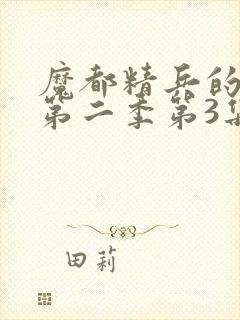 魔都精兵的
第二季第3集
田莉